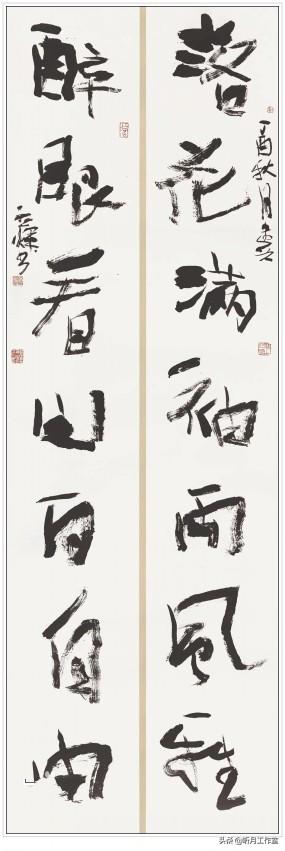 落花满袖风雅
丁酉秋月
醉眼看山百自由
头条 @听月工作室